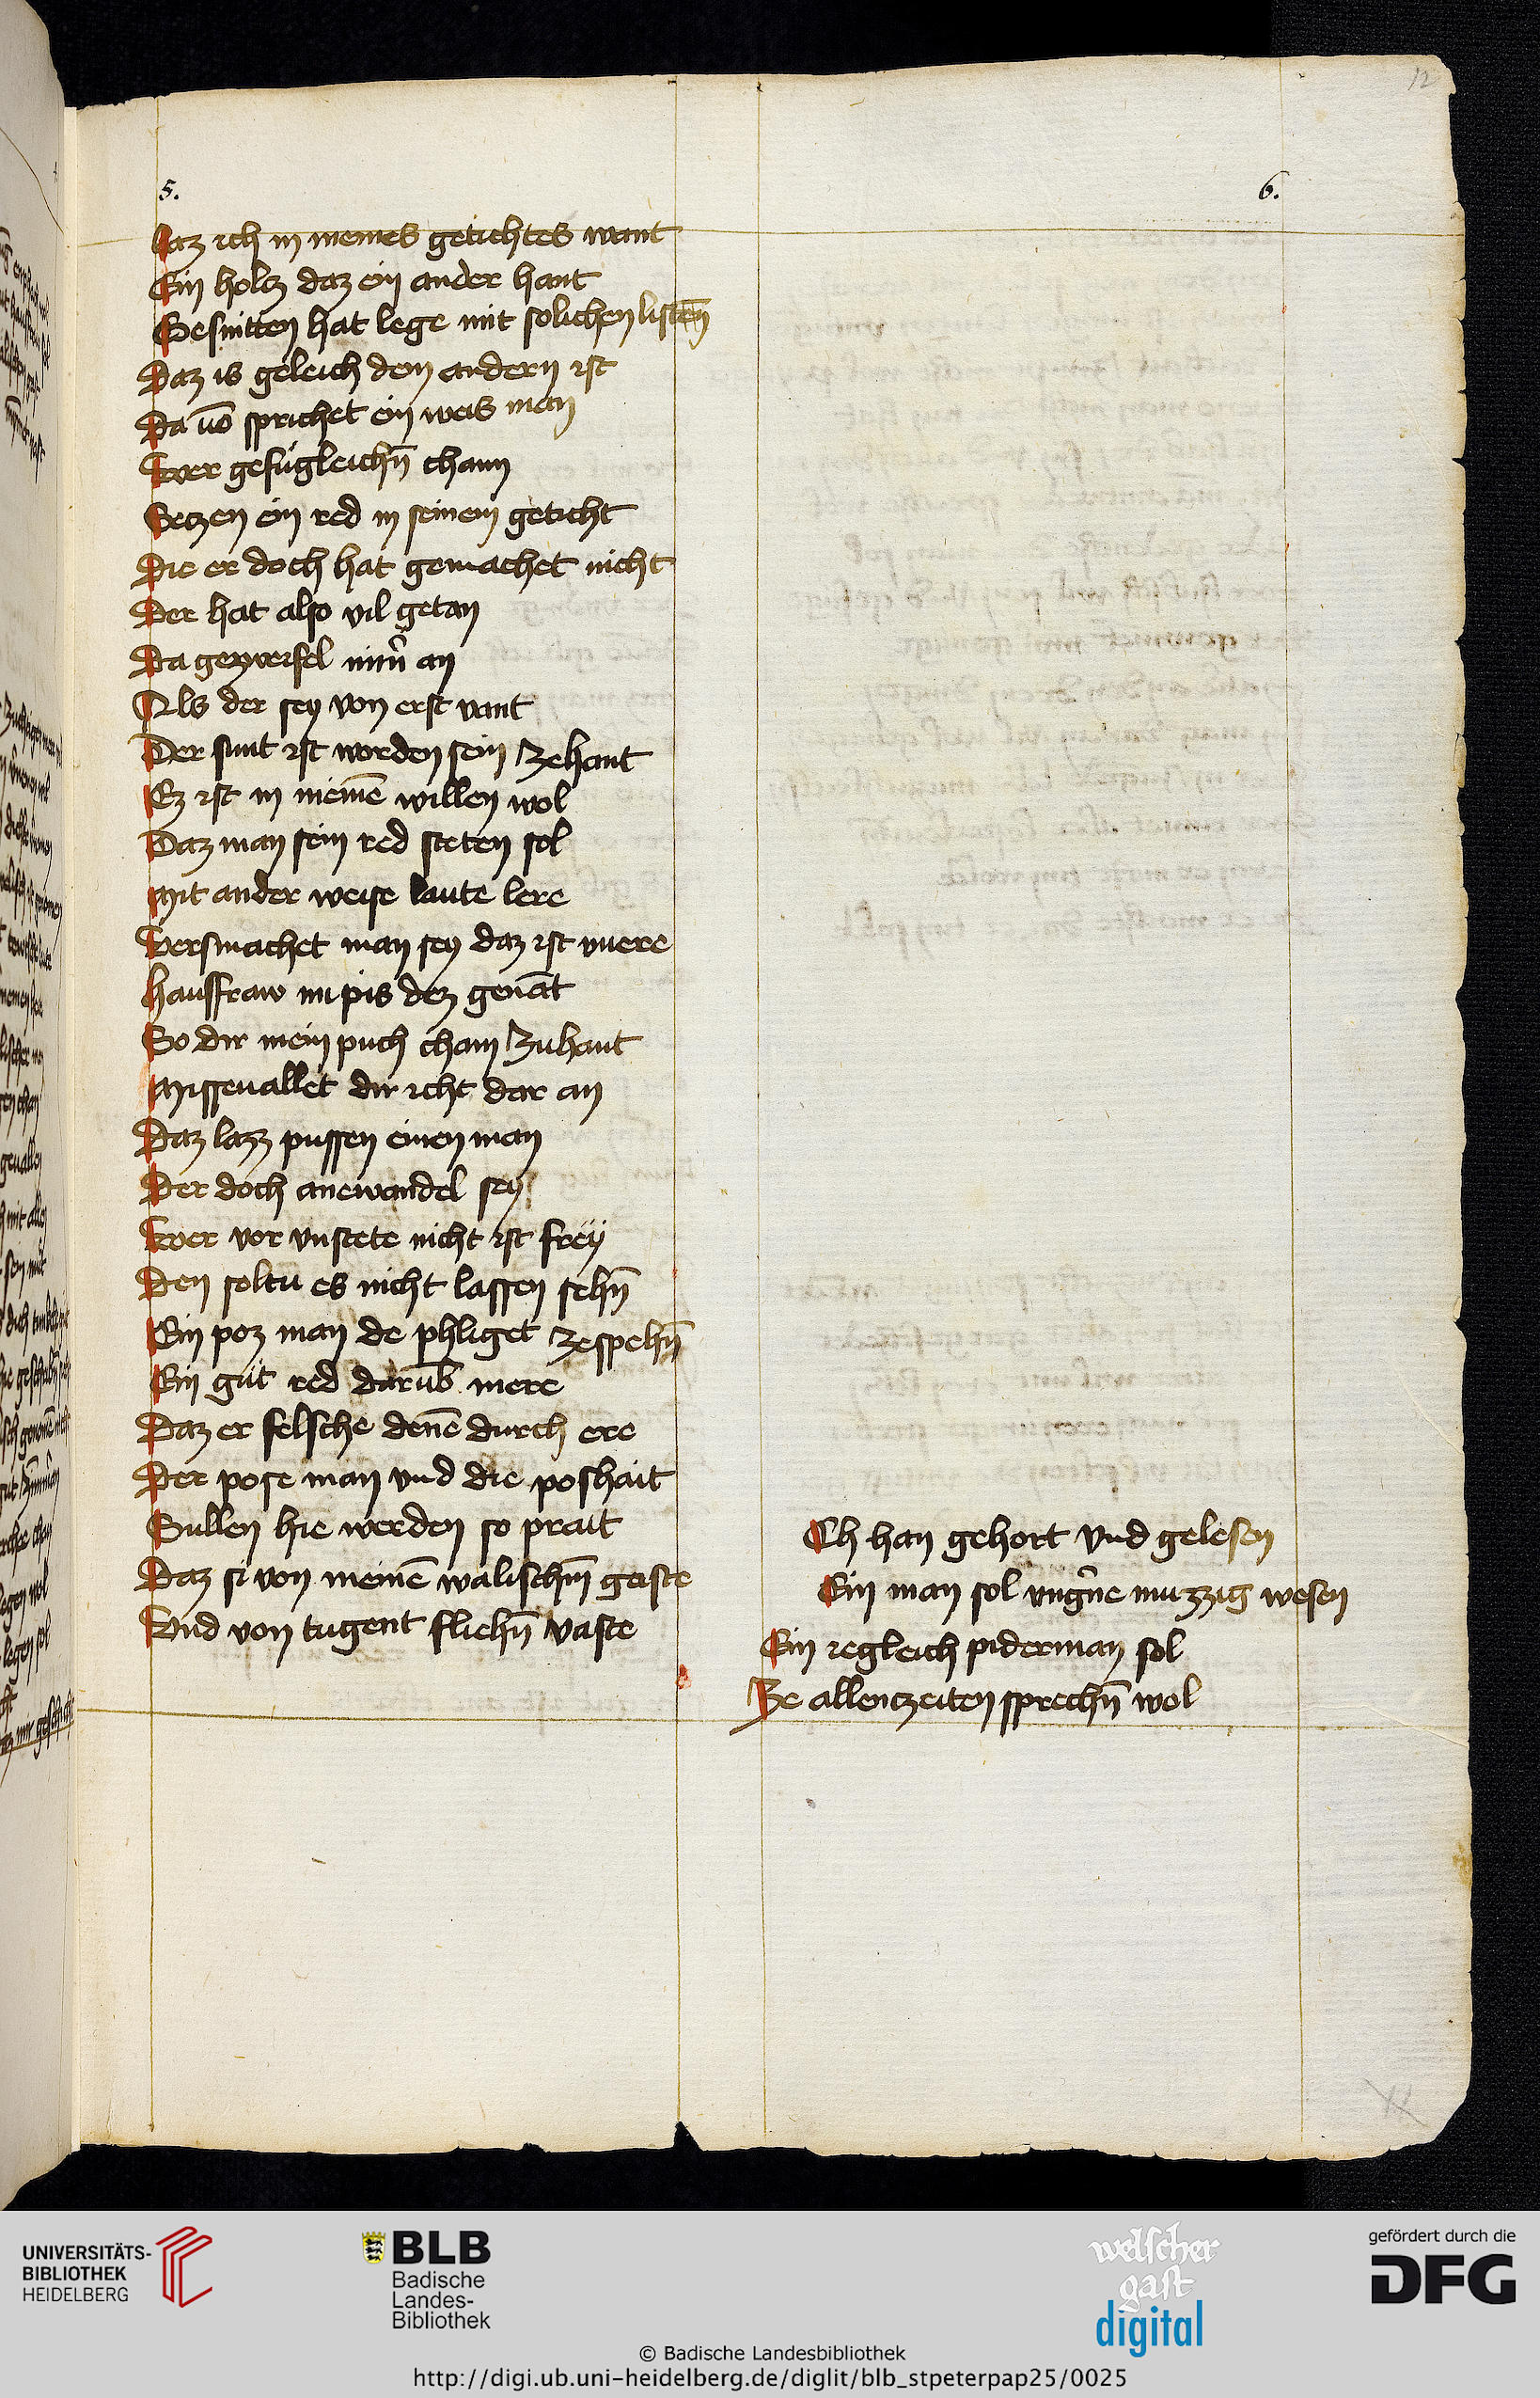 12
5.
laz ich in meines getichtes want
Ein holcz daz ein ander hant
Gesnitten hat lege mit solichen listen̄
Daz is geleich dem andern ist
Da vō sprichet ein weis man
Wer gefugleichn̄ chann
Seczen ein red in seinem geticht
Die er doch hat gemachet nicht
Der hat also vil getan
Da gezweifel an
Als der sey von erst vant
Der sunt ist worden sein zehant
Ez ist in meinē willen wol
Daz man sein red steten sol
Mit ander weise laute lere
Versmachet man sey daz ist vnere
hausfraw nu pis dez genāt
So dir mein puch cham zuhant
Missevallet dir icht dar an
Daz lazz pussen einen man
Der doch anewandel sey
Wer vor vnstete nicht ist freÿ
Den soltu es nicht lassen sehn̄
Ein poz man de phliget zespehn̄
Ein gut red darūb mere
Daz er felsche denē durch ere
Der pose man vnd die poshait
Sullen hie werden so prait
Daz si von meinē walischm̄ gaste
Vnd von tugent fliehn̄ vaste
6.
Ch han gehort vnd gelesen
Ein man sol vngn̄e muzzig wesen
Ein iegleich piderman sol
Ze allenczeiten sprechn̄ wol
UNIVERSITÄTS-
BIBLIOTHEK
HEIDELBERG
BLB
Badische
Landes-
Bibliothek
welscher
gast
digital
gefördert durch die
DFG
© Badische Landesbibliothek
http://digi.ub.uni-heidelberg.de/diglit/blb_stpeterpap25/0025